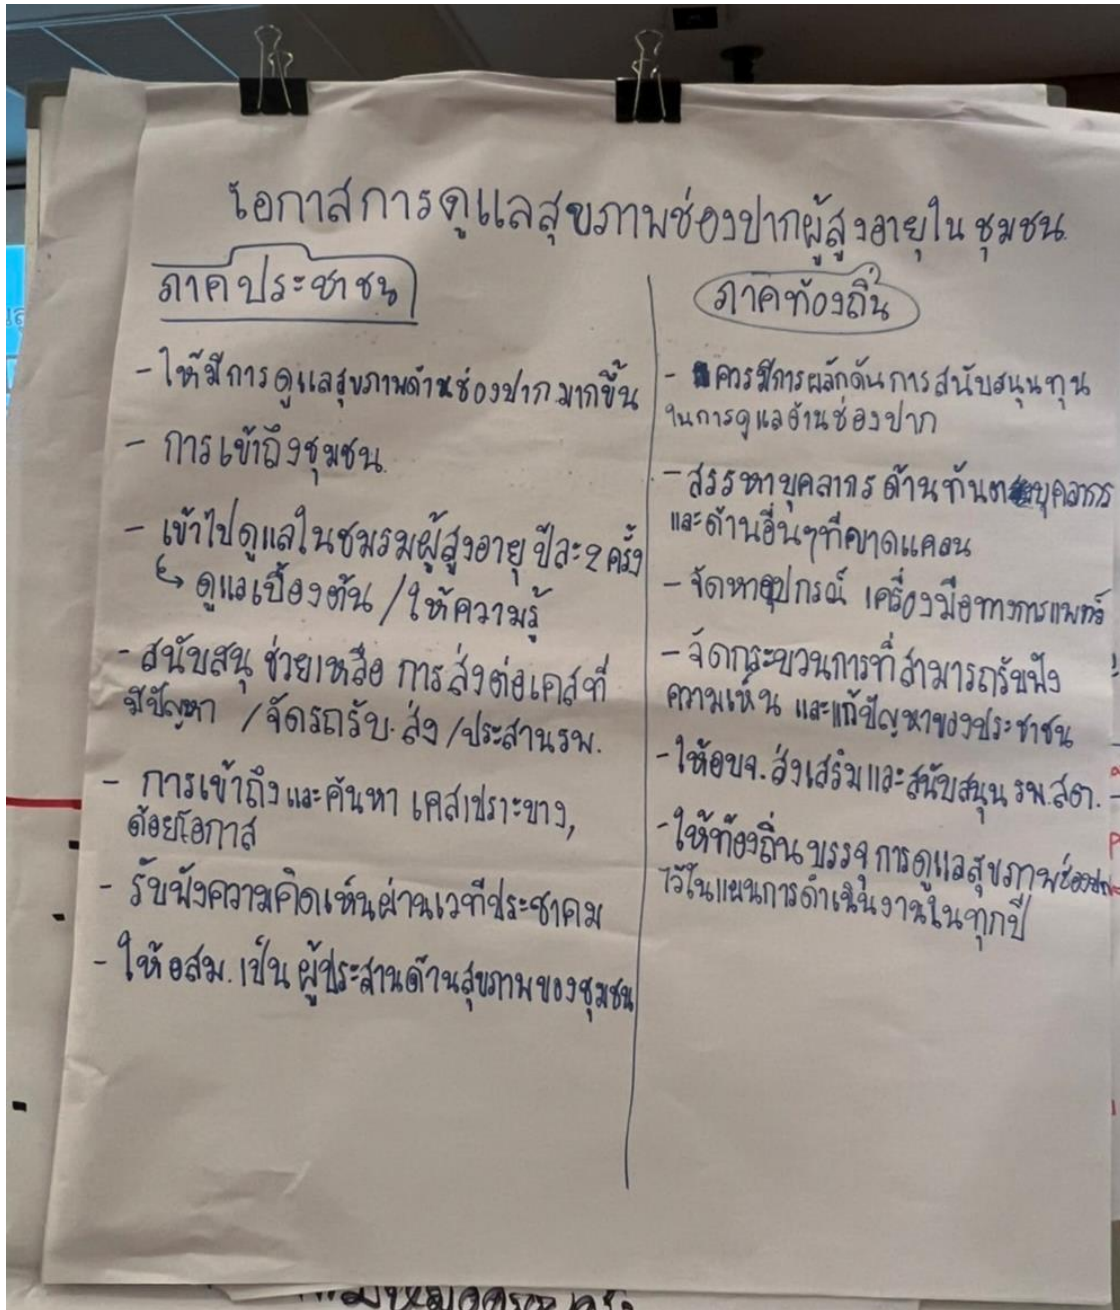 โอกาสการดูแลสุขภาพช่องปากผู้สูงอายุใน ชุมชน
ภาคประชาชน
- ให้มีการดูแลสุขภาพด้านช่องปากมากขึ้น
- การเข้าถึงชุมชน
- เข้าไปดูแลในชมรมผู้สูงอายุ ปีละ 2 ครั้ง
↳ ดูแลเบื้องต้น / ให้ความรู้
- สนับสนุ ช่วยเหลือ การส่งต่อเคสที่
มีปัญหา / จัดรถรับ-ส่ง / ประสานรพ.
- การเข้าถึงและค้นหา เคสเปราะบาง,
ด้อยโอกาส
- รับฟังความคิดเห็นผ่านเวทีประชาคม
- ให้ อสม. เป็น ผู้ประสานด้านสุขภาพของชุมชน
ภาคท้องถิ่น
- ควรมีการผลักดันการสนับสนุนทุน
ในการดูแลด้านช่องปาก
- สรรหาบุคลากร ด้านทันตบุคลากร
และด้านอื่นๆที่ขาดแคลน
- จัดหาอุปกรณ์ เครื่องมือทางการแพทย์
- จัดกระบวนการที่สามารถรับฟัง
ความเห็น และแก้ปัญหาของประชาชน
- ให้อบจ. ส่งเสริมและสนับสนุน รพ.สต.
- ให้ท้องถิ่น บรรจุ การดูแลสุขภาพช่องปาก
ไว้ในแผนการดำเนินงานในทุกปี